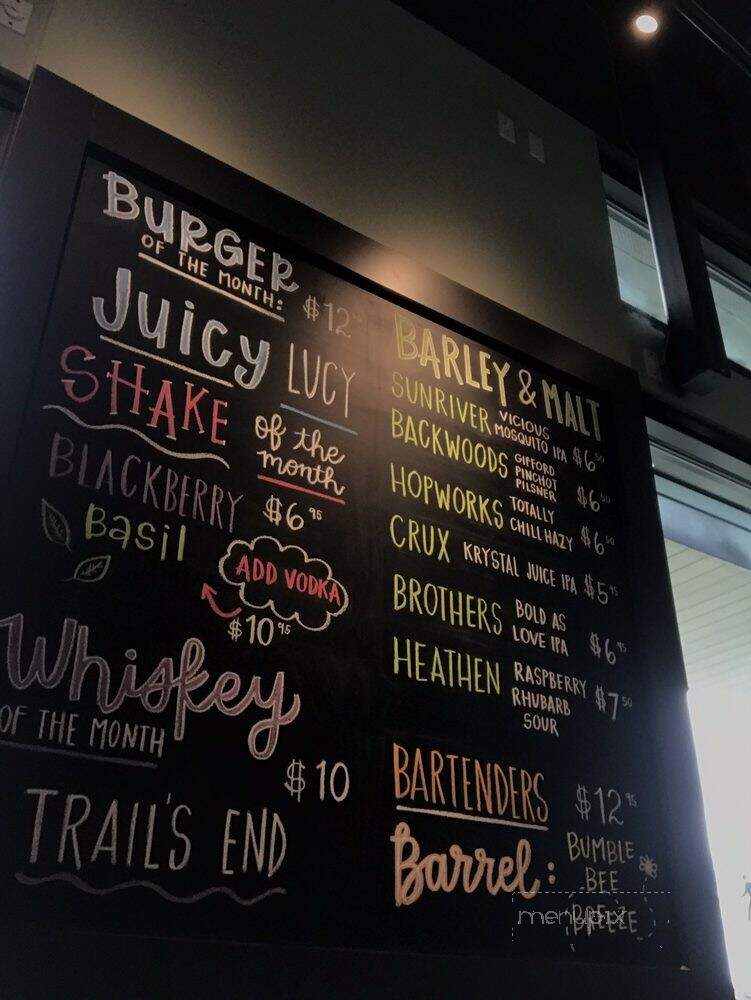 BURGER
OF THE MONTH: $12
JUICY LUCY
SHAKE
of the
month
BLACKBERRY $6 95
Basil
ADD VODKA
$10 95
Whiskey
OF THE MONTH
$10
TRAIL'S END
BARLEY & MALT
SUNRIVER VICIOUS
MOSQUITO IPA $6 50
BACKWOODS GIFFORD
PINCHOT
PILSNER $6 50
HOPWORKS TOTALLY
CHILL HAZY $6 50
CRUX KRYSTAL JUICE IPA $5 95
BROTHERS BOLD AS
LOVE IPA $6 95
HEATHEN RASPBERRY
RHUBARB
SOUR $7 50
BARTENDERS $12 95
Barrel: BUMBLE
BEE
BREEZE
menupix